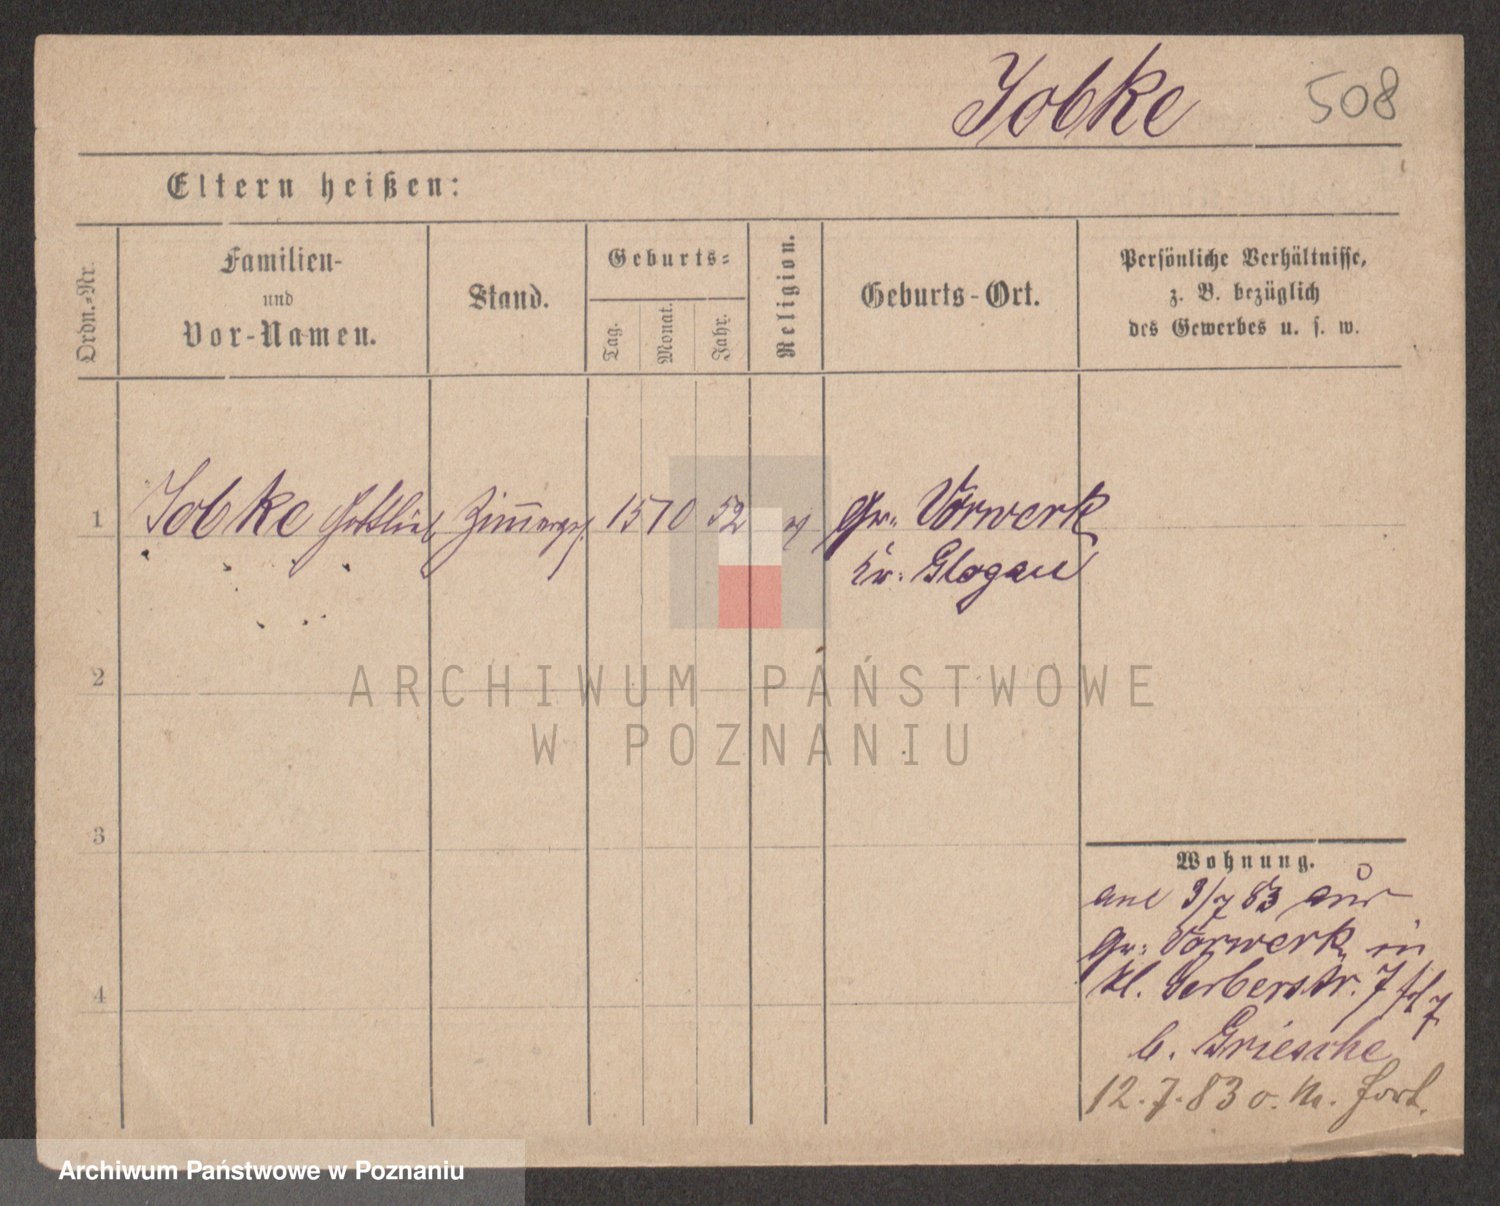 Jobke 508
Eltern heißen:
Ordn.-Nr.
Familien-
und
Vor-Namen.
Stand.
Geburts-
Tag.
Monat.
Jahr.
Religion.
Geburts-Ort.
Persönliche Verhältnisse,
z. B. bezüglich
des Gewerbes u. s. w.
1 Jobke Gottlieb Zimmerges. 15 10 52 Gr. Vorwerk
Kr. Glogau
2
3
4
Wohnung.
am 9/7 83 aus
Gr. Vorwerk in
Kl. Gerberstr. 7
b. Griesche
12.7.83 o. M. fort.
ARCHIWUM PAŃSTWOWE
W POZNANIU
Archiwum Państwowe w Poznaniu